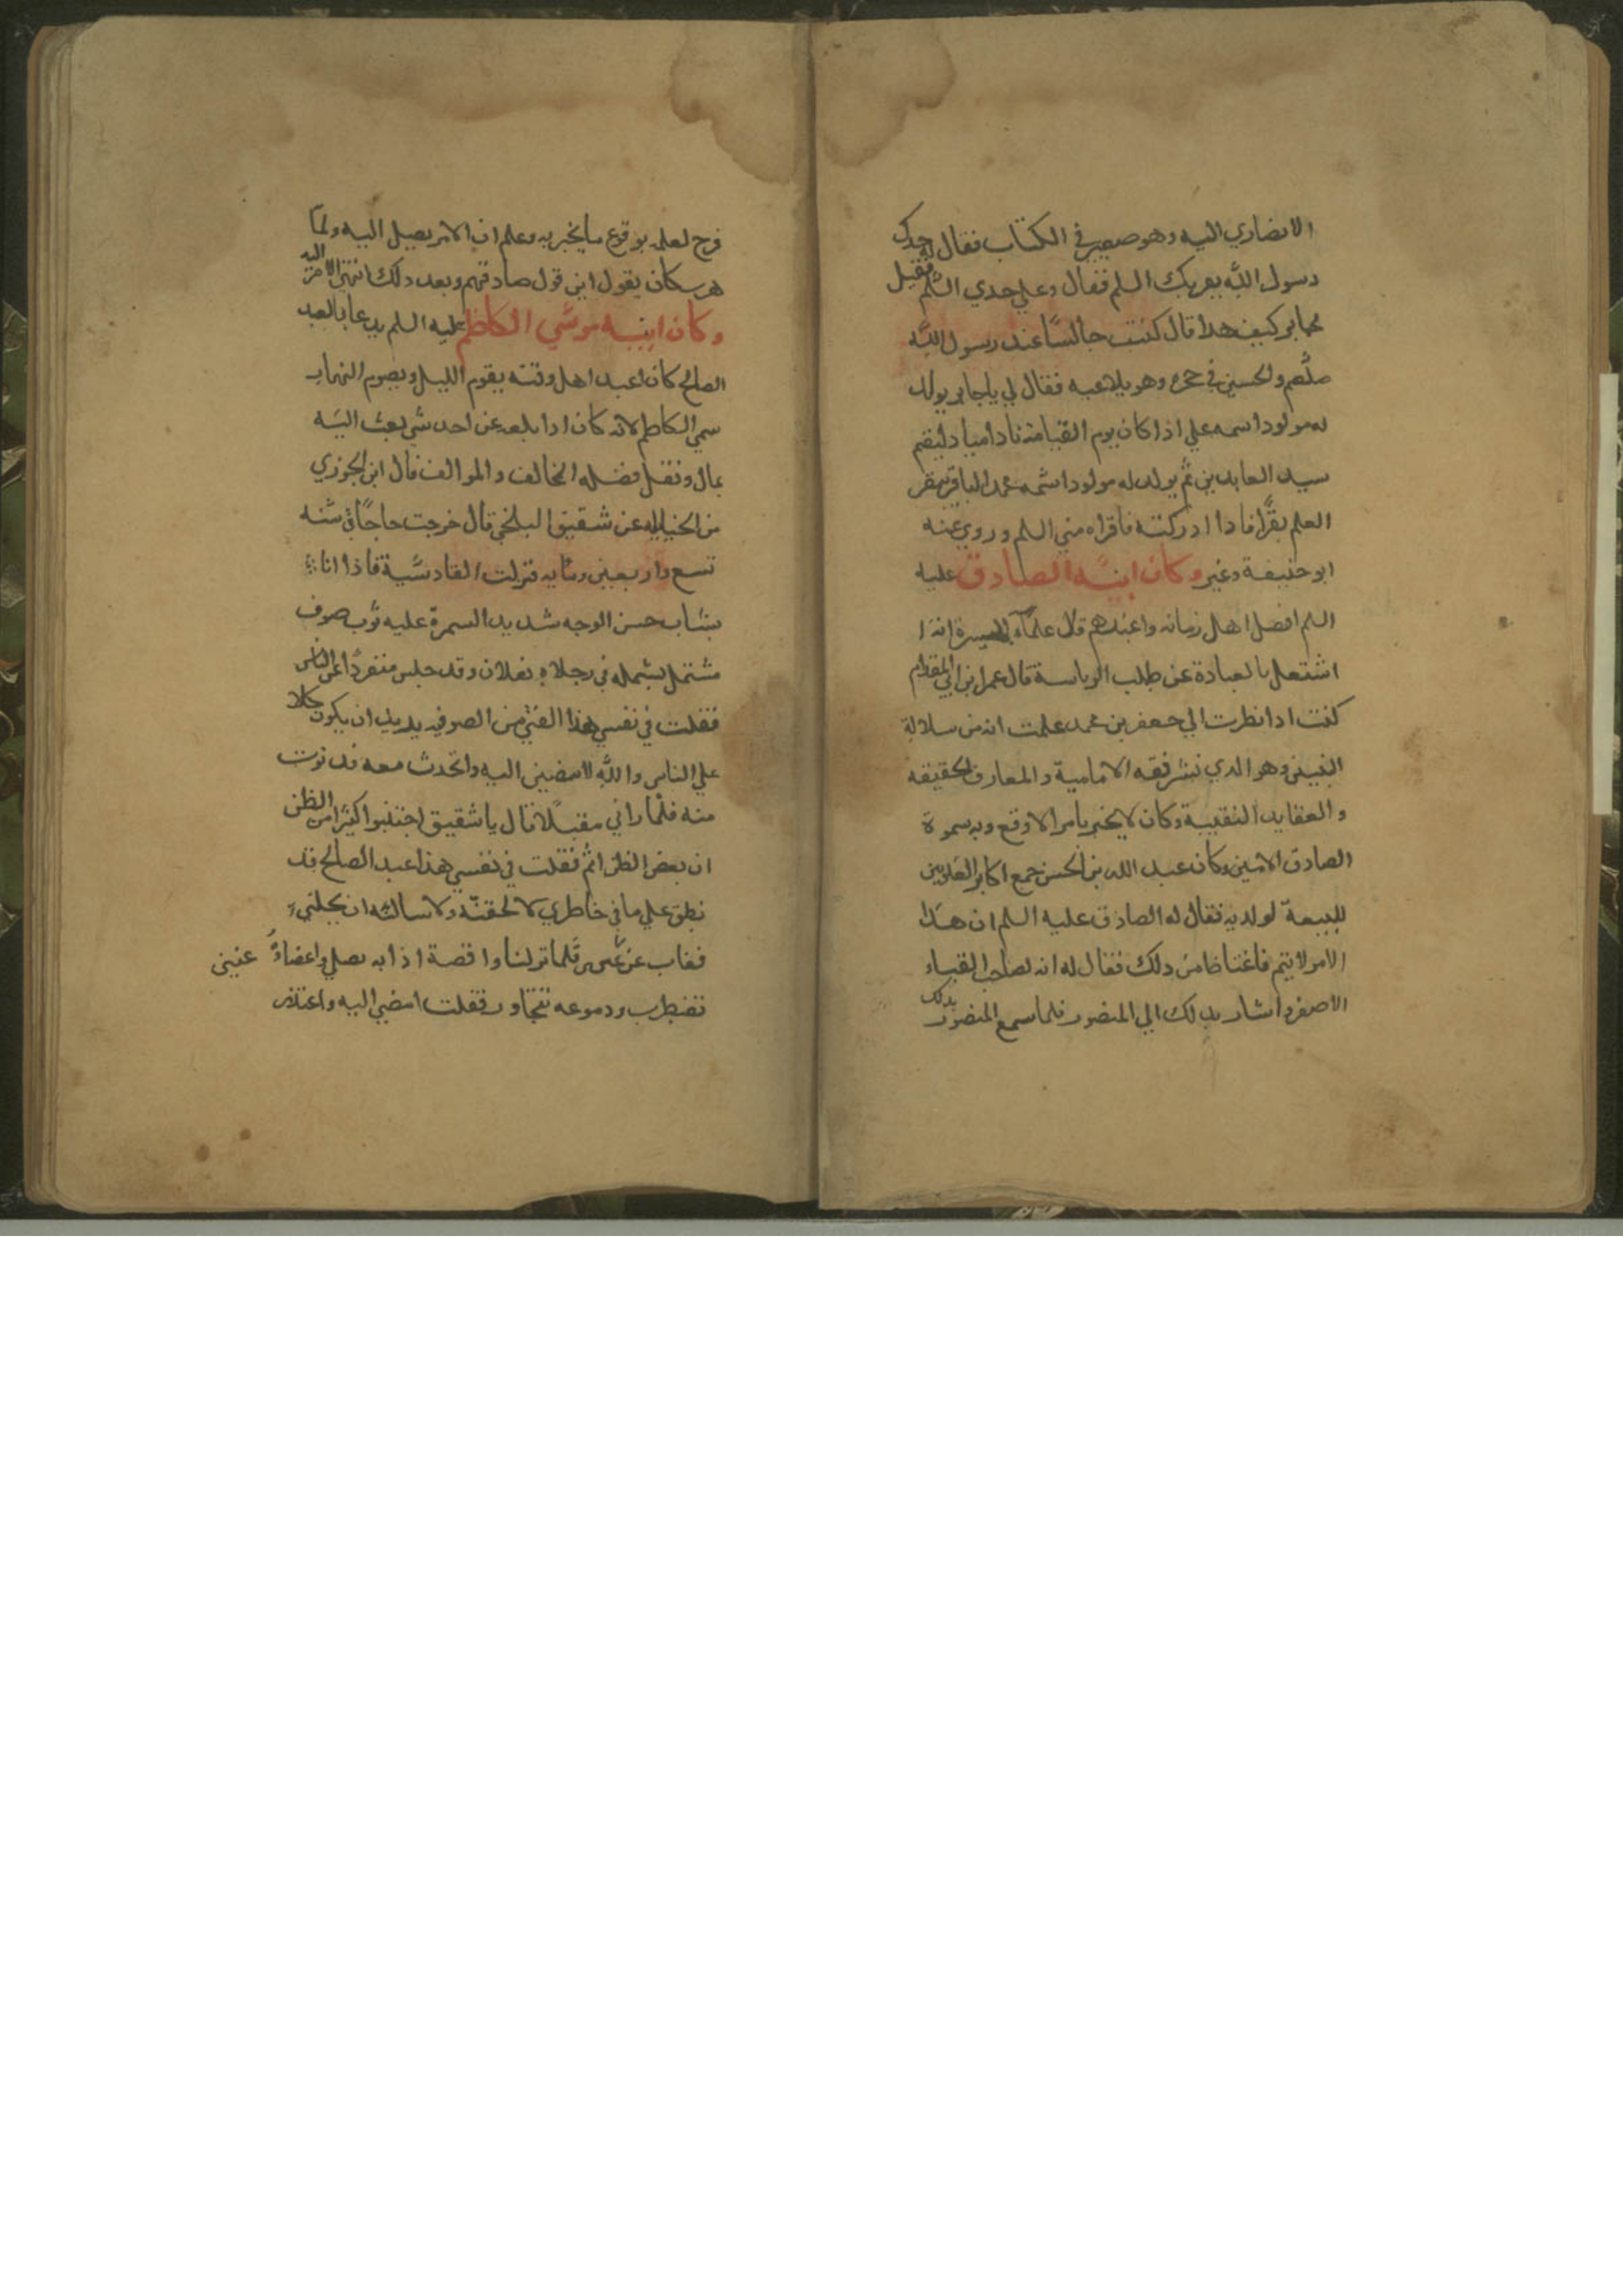 الانصاري اليه وهو صغير في الكتاب فقال له جدك
رسول الله يقريك السلم فقال وعلي جدي السلم فقيل
لجابر كيف هدا قال كنت جالسا عند رسول الله
صلعم والحسين في حجره وهو يلاعبه فقال لي ياجابر يولد
له مولود اسمه علي اذا كان يوم القيامة نادا مناد ليقم
سيد العابدين ثم يولد له مولود اسمه محمد الباقر يبقر
العلم بقرا فادا ادركته فاقراه مني السلم وروي عنه
ابو حنيفة وغيره وكان ابنه الصادق عليه
السلم افضل اهل زمانه واعبدهم قال علمآء السيرة انه ا
اشتغل بالعبادة عن طلب الرياسة قال عمر بن ابي المقدام
كنت ادا نظرت الي جعفر بن محمد علمت انه من سلالة
النبيين وهو الدي نشر فقه الامامية والمعارف الحقيقه
والعقايد النقيبة وكان لا يخبر بامر الا وقع وبه سموه
الصادق الامين وكان عبد الله بن الحسن جمع اكابر العلويين
للبيعة لولديه فقال له الصادق عليه السلم ان هدا
الامر لا يتم فاغتاظ من دلك فقال له انه لصاحب القباء
الاصفر واشار بدلك الي المنصور فلما سمع المنصور بدلك
فرح لعلمه بوقوع ما يخبر به وعلم ان الامر يصل اليه ولما
هرب كان يقول اين قول صادقهم وبعد دلك انتهي الامر اليه
وكان ابنه موسي الكاظم عليه السلم يدعا بالعبد
الصالح كان اعبد اهل وقته يقوم الليل ويصوم النهار
سمي الكاظم لانه كان ادا بلغه عن احد شي بعث اليه
بمال ونقل فضله المخالف والموالف قال ابن الجوزي
من الحنابله عن شقيق البلخي قال خرجت حاجا في سنه
تسع واربعين ومايه فنزلت القادسية فاذا انا
بشاب حسن الوجه شديد السمرة عليه ثوب صوف
مشتمل بشمله في رجلاه نعلان وقد جلس منفردا عن الناس
فقلت في نفسي هذا الفتي من الصوفيه يريد ان يكون كلا
علي الناس والله لامضين اليه واتحدث معه فدنوت
منه فلما راني مقبلا قال ياشقيق اجتنبوا كثيرا من الظن
ان بعض الظن اثم فقلت في نفسي هذا عبد الصالح قد
نطق علي ما في خاطري لالحقنه ولاسالنه ان يحللني
فغاب عن عيني فلما نزلنا واقصة اذا به يصلي واعضاؤه
تضطرب ودموعه تتحادر فقلت امضي اليه واعتذر